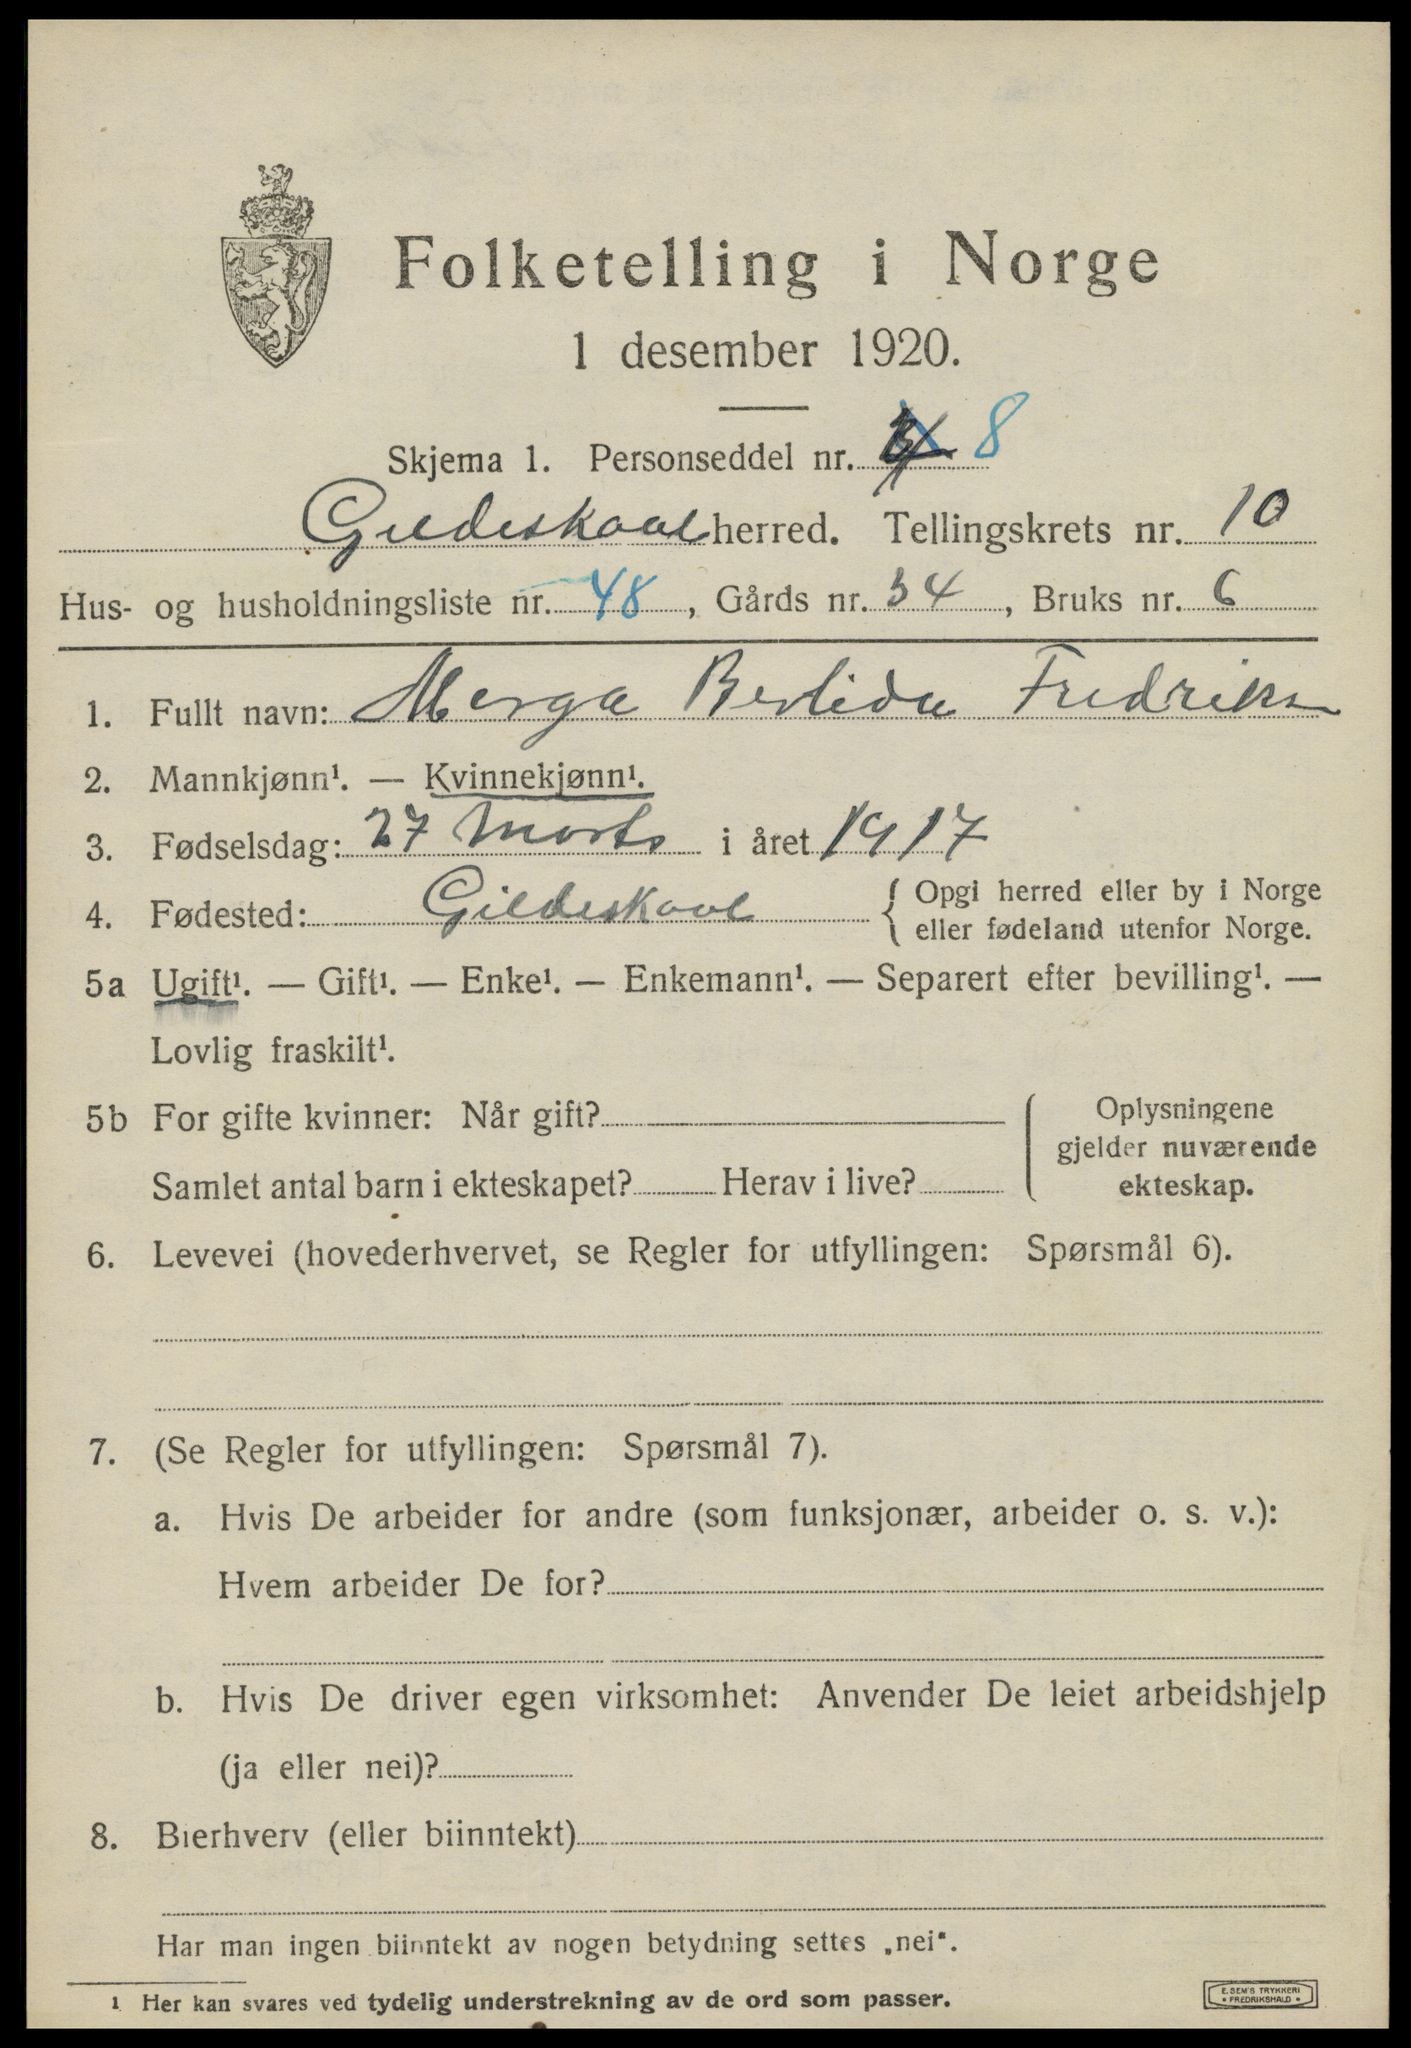 Folketelling i Norge
1 desember 1920.
Skjema 1. Personseddel nr. 8
Gildeskaal herred. Tellingskrets nr. 10
Hus- og husholdningsliste nr. 48, Gårds nr. 34, Bruks nr. 6
1. Fullt navn: Merga Berlida Fredriks
2. Mannkjønn¹. — Kvinnekjønn¹.
3. Fødselsdag: 27 Marts i året 1917
4. Fødested: Gildeskaal { Opgi herred eller by i Norge
eller fødeland utenfor Norge.
5a Ugift¹. — Gift¹. — Enke¹. — Enkemann¹. — Separert efter bevilling¹. —
Lovlig fraskilt¹.
5b For gifte kvinner: Når gift?
Samlet antal barn i ekteskapet? Herav i live?
Oplysningene
gjelder nuværende
ekteskap.
6. Levevei (hovederhvervet, se Regler for utfyllingen: Spørsmål 6).
7. (Se Regler for utfyllingen: Spørsmål 7).
a. Hvis De arbeider for andre (som funksjonær, arbeider o. s. v.):
Hvem arbeider De for?
b. Hvis De driver egen virksomhet: Anvender De leiet arbeidshjelp
(ja eller nei)?
8. Bierhverv (eller biinntekt)
Har man ingen biinntekt av nogen betydning settes „nei“.
1 Her kan svares ved tydelig understrekning av de ord som passer.
E. SEM'S TRYKKERI
• FREDRIKSHALD •